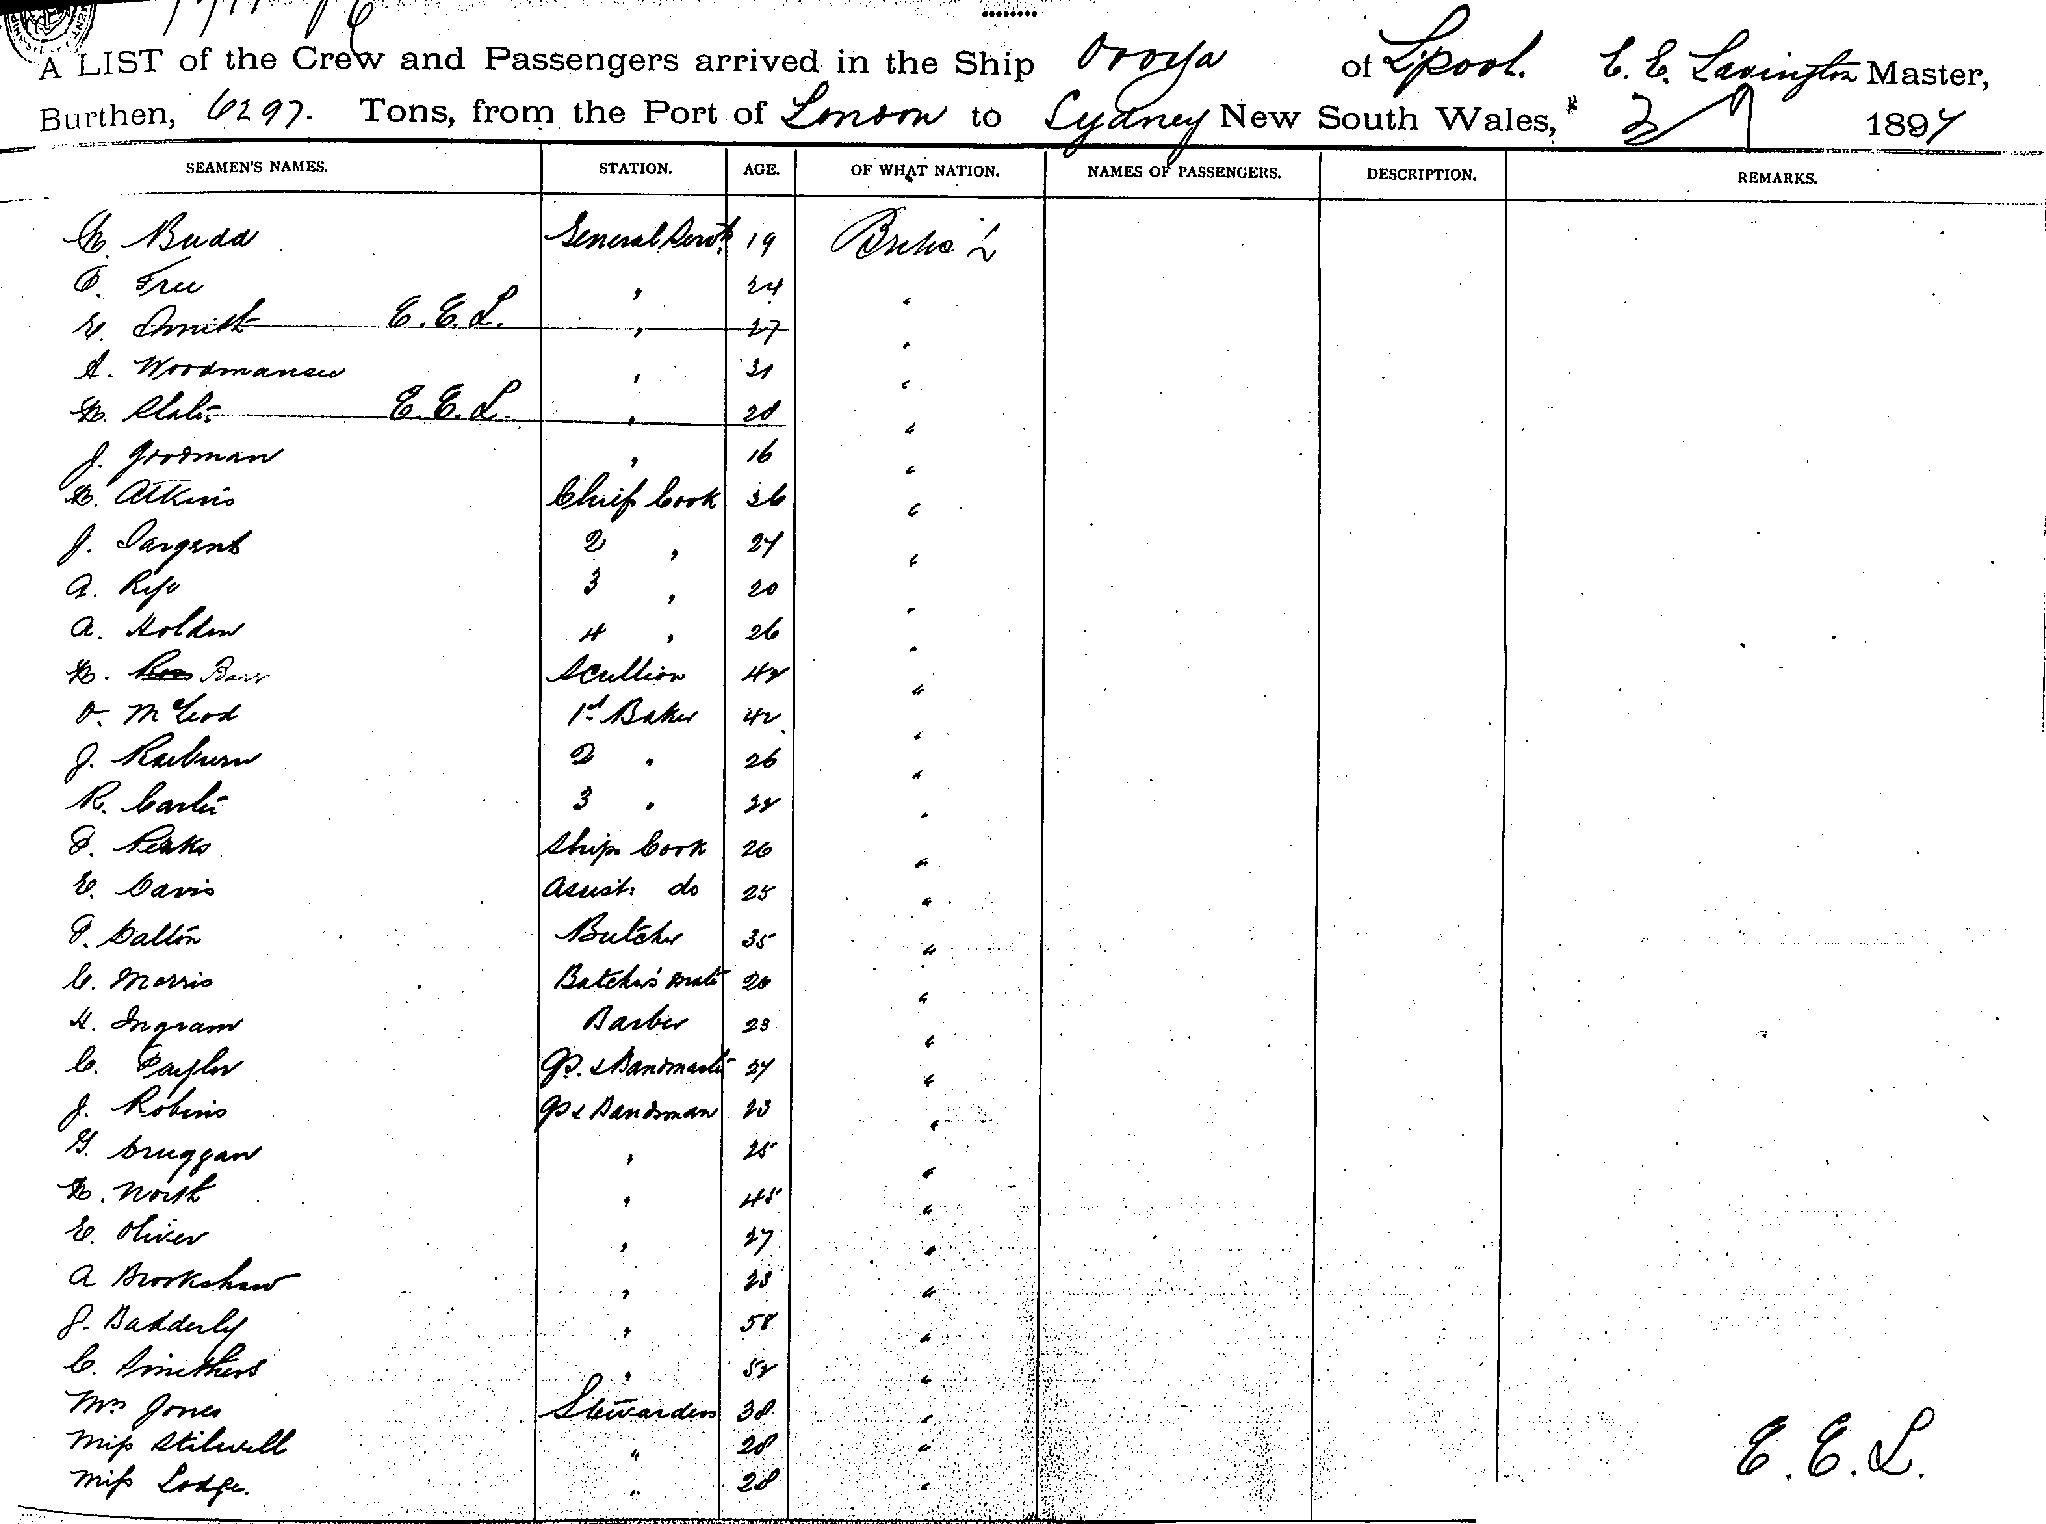 A LIST of the Crew and Passengers arrived in the Ship Oroya of Lpool. E. E. Lavington Master,
Burthen, 6297. Tons, from the Port of London to Sydney New South Wales,* 1897
SEAMEN'S NAMES. STATION. AGE. OF WHAT NATION. NAMES OF PASSENGERS. DESCRIPTION. REMARKS.
Budd General Servt 19
Tree " 24 "
E. Smith E.E.L. " 27 "
A. Woodmansee " 31 "
W. Slater E.E.L. " 28 "
J. Goodman " 16 "
W. Atkins Chief Cook 36 "
J. Sargent 2 " 27 "
A. 3 " 20 "
A. Holden 4 " 26 "
W. Ross Barr Scullion 42 "
D. McLeod 1st Baker 42 "
J. Raeburn 2 " 26 "
R. Carter 3 " 32 "
Perks Ships Cook 26 "
E. Davis Assist. do 25 "
Dalton Butcher 35 "
C. Morris Butcher's Mate 20 "
H. Ingram Barber 23 "
C. Taylor GS. & Bandmaster 37 "
J. Robins GS & Bandsman 23 "
G. Cruggan " 25 "
W. North " 45 "
E. Oliver " 27 "
A Brookshaw " 23 "
J. Badderly " 58 "
C. Smithers " 52 "
Mrs Jones Stewardess 38 "
Miss Stilwell " 28 "
Miss Lodge. " 28 "
E. E. L.